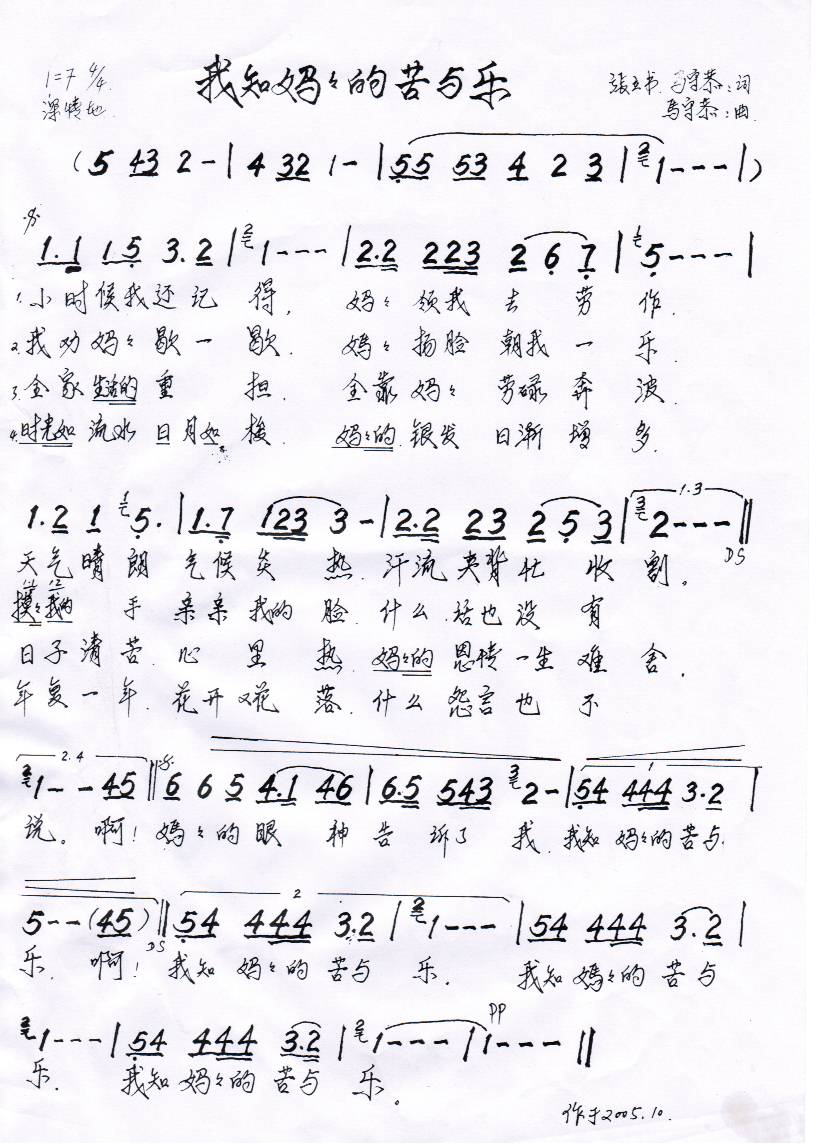 我知妈々的苦与乐
1=F 4/4
深情地
馬守恭:詞
馬守恭:曲
(5 43 2-|4 32 1-|55 53 4 2 3|2 1---|)
1.1 15 3.2|2 1---|2.2 223 2 6 7|6 5---|
1.小时候我还记得, 妈々领我去劳作.
2.我劝妈々歇一歇. 媽々扬脸朝我一乐.
3.全家生活的重担. 全靠妈々劳碌奔波
4.时光如流水日月如梭. 妈々的银发日渐增多.
1.2 1 1 5.|1.7 123 3-|2.2 23 2 5 3|3 2---||
1.3
DS
天气晴朗气候炎热.汗流夹背忙收割.
摸々我的手亲亲我的脸.什么话也没有
日子清苦.心里热.妈妈的恩情一生难舍.
年复一年.花开又花落.什么怨言也不
2.4
2 1--45||6 6 5 4.1 46|6.5 543 3 2-|54 444 3.2|
1
说。啊!媽々的眼神告诉了我.我知妈々的苦与
5--(45)||54 444 3.2|2 1---|54 444 3.2|
2
DS
乐.啊!我知妈々的苦与乐.我知媽々的苦与
2 1---|54 444 3.2|2 1---|1---||
PP
乐.我知妈々的苦与乐。
作于2005.10.